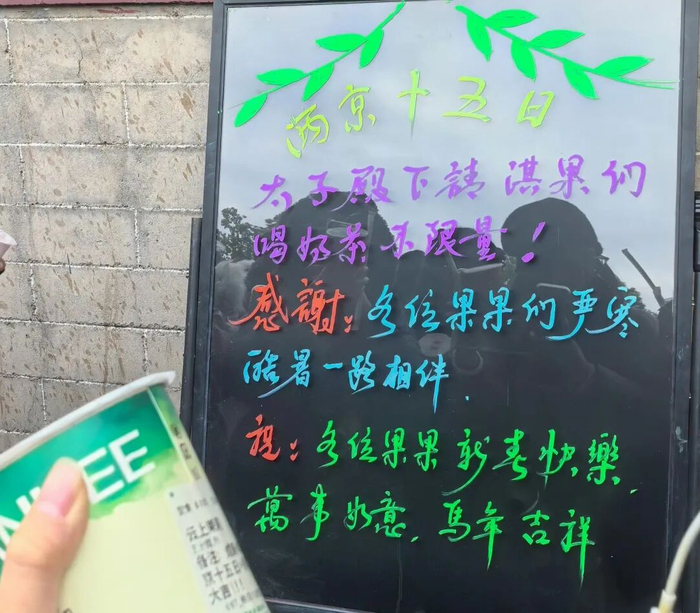 两京十五日
太子殿下請淇果们
喝奶茶不限量！
感謝：各位果果们严寒
酷暑一路相伴.
祝：各位果果新春快樂.
萬事如意.馬年吉祥
云上茉
备注：
京十五日
大吉！！！